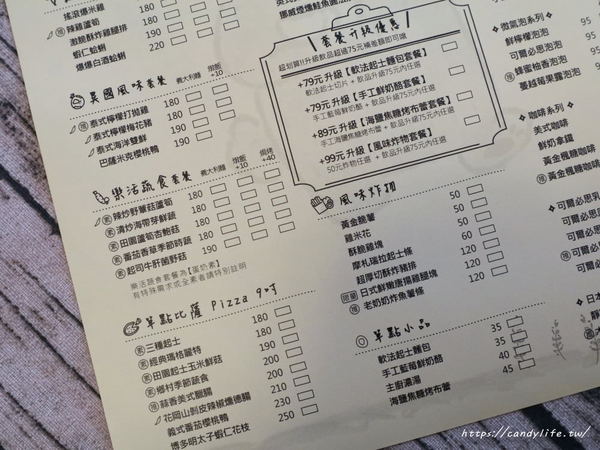 搖滾爆米雞 180
辣雞蘆筍 190
激脆酥炸雞腿排 200
蝦仁蛤蜊 220
爆爆白酒蛤蜊
挪威煙燻鮭魚
異國風味套餐 義大利麵 燉飯+10
推 泰式檸檬打拋雞 180
泰式檸檬梅花豬 180
泰式海洋雙鮮 190
巴薩米克櫻桃鴨 190
樂活蔬食套餐 義大利麵 燉飯+10 焗烤+40
素 辣炒野蕈菇蘆筍 180
素 清炒海帶芽鮮蔬 180
素 田園蘆筍杏鮑菇 180
素 番茄香草季節時蔬 180
素 起司牛肝菌野菇 190
樂活蔬食套餐為【蛋奶素】
有特殊需求或全素者請特別註明
單點比薩 Pizza 9吋
素 三種起士 180
素 經典瑪格麗特 180
素 田園起士玉米鮮菇 190
素 鄉村季節蔬食 200
推 蒜香美式臘腸 210
花岡山剝皮辣椒燻德腸 200
義式番茄櫻桃鴨 230
博多明太子蝦仁花枝 250
套餐升級優惠
超划算!!升級飲品超過75元補差額即可唷
+79元 升級【軟法起士麵包套餐】
軟法起士切片 + 飲品升級75元內任選
+79元 升級【手工鮮奶酪套餐】
手工藍莓鮮奶酪 + 飲品升級75元內任選
+89元 升級【海鹽焦糖烤布蕾套餐】
手工海鹽焦糖烤布蕾 + 飲品升級75元內任選
+99元 升級【風味炸物套餐】
50元炸物任選 + 飲品升級75元內任選
風味炸物
黃金脆薯 50
雞米花 50
酥脆雞塊 60
摩札瑞拉起士條 120
超厚切酥炸豬排 120
限量 日式鮮嫩唐揚雞腿塊 120
推 老奶奶炸魚薯條 120
單點小品
軟法起士麵包 35
手工藍莓鮮奶酪 35
主廚濃湯 40
海鹽焦糖烤布蕾 45
微氣泡系列
鮮檸檬泡泡
可爾必思泡泡
推 蜂蜜柚香泡泡
蔓越莓果露泡泡
咖啡系列
美式咖啡
鮮奶拿鐵
黃金楓糖咖啡
推 黃金楓糖咖啡
可爾必思
可爾必思
可爾必思乳
可爾必思
可爾必思
日本
95
95
https://candylife.tw/